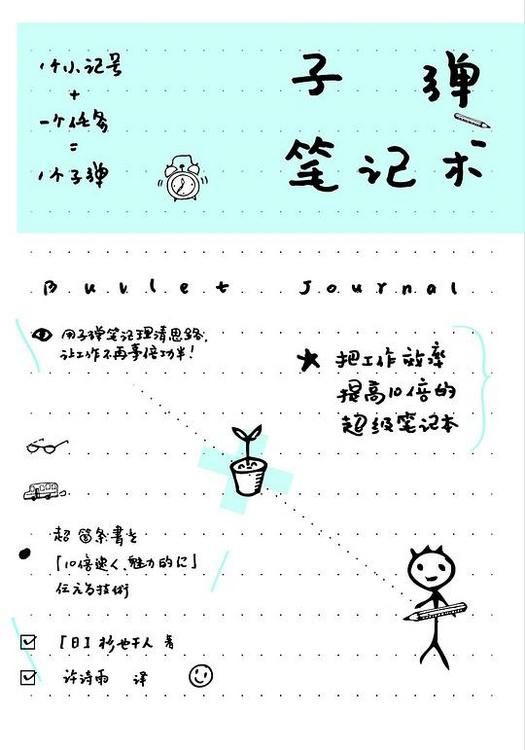 1个小记号
+
一个任务
=
1个子弹
子弹
笔记术
Bullet Journal
用子弹笔记理清思路,
让工作不再事倍功半!
把工作效率
提高10倍的
超级笔记本
超 箇条書き
「10倍速く、魅力的に」
伝える技術
[日]杉野干人 著
许诗雨 译